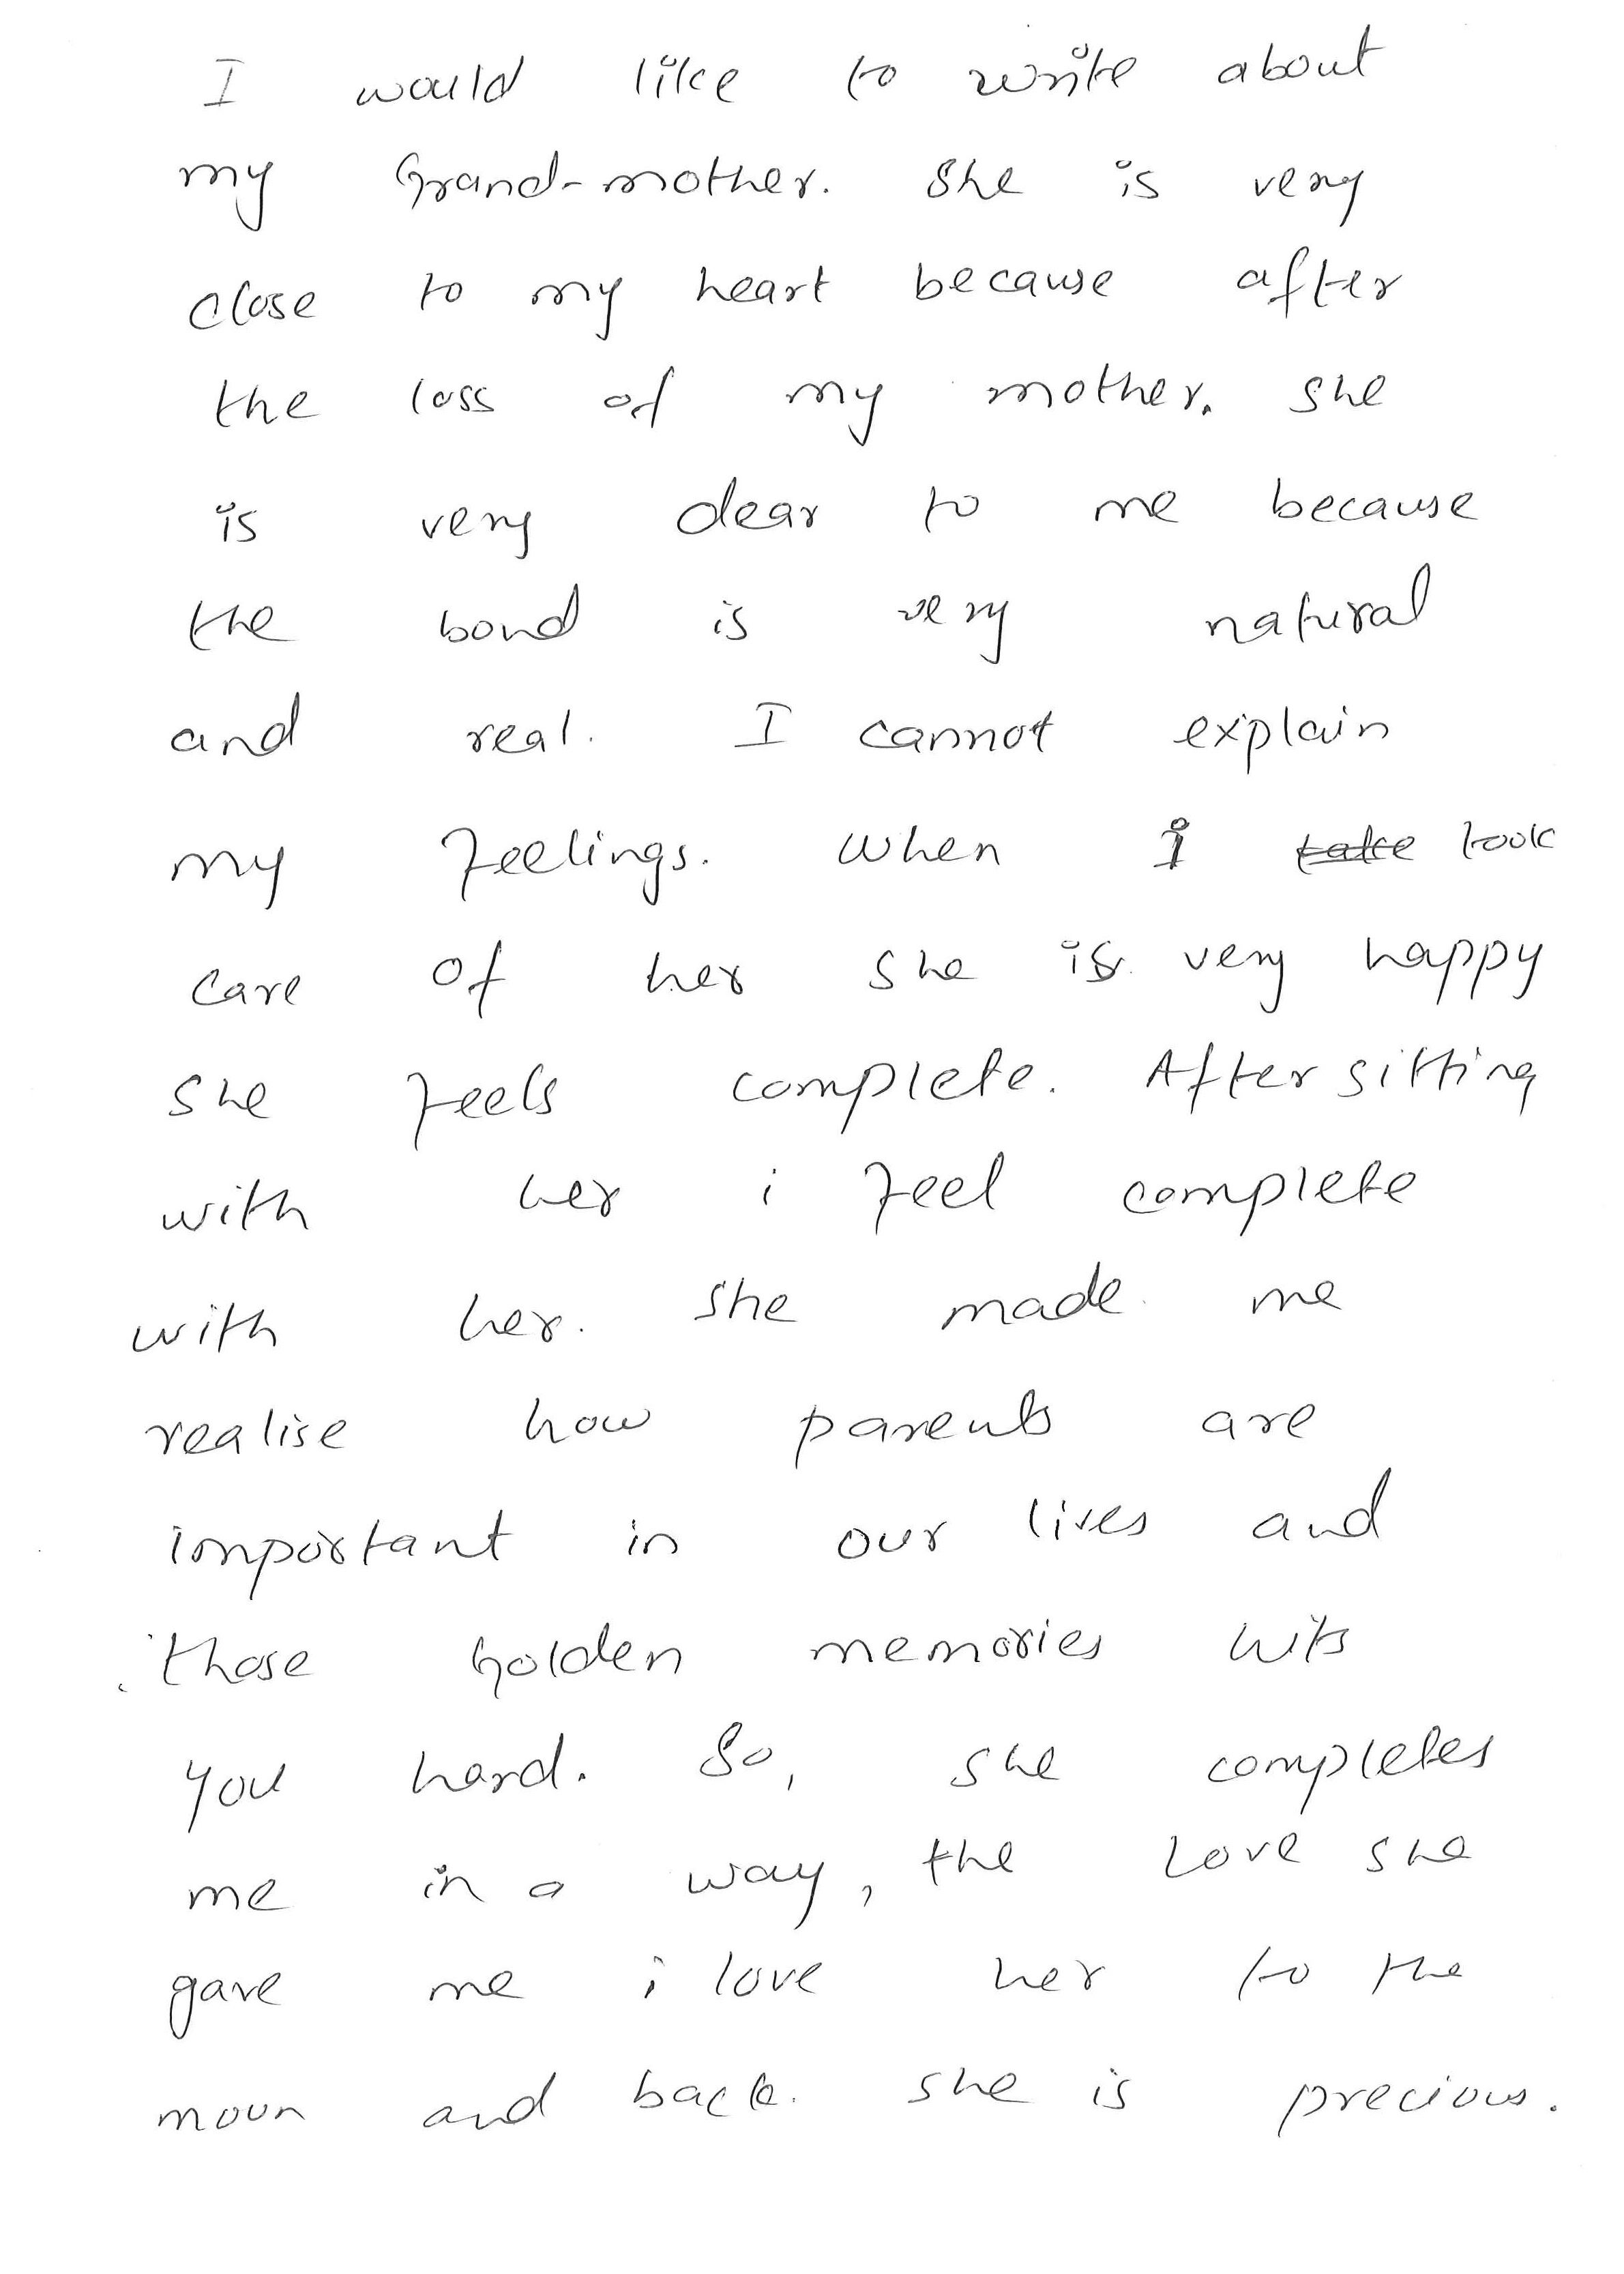 I would like to write about
my Grand-mother. She is very
close to my heart because after
the loss of my mother. She
is very dear to me because
the bond is very natural
and real. I cannot explain
my feelings. When I take took
care of her she is very happy
she feels complete. After sitting
with her i feel complete
with her. She made me
realise how parents are
important in our lives and
those Golden memories hits
you hard. So, she completes
me in a way, the Love she
gave me i love her to the
moon and back. She is precious.